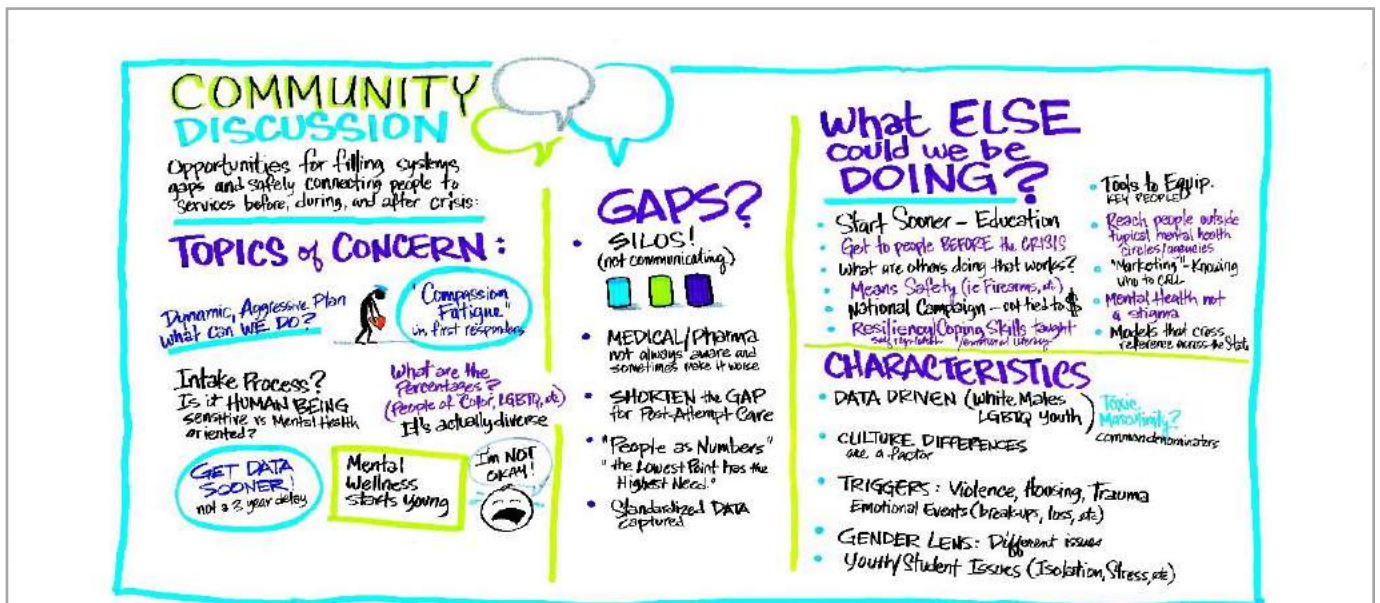 COMMUNITY
DISCUSSION
Opportunities for filling systems
gaps and safely connecting people to
services before, during, and after crisis:
TOPICS of CONCERN:
Dynamic, Aggressive Plan
What can WE DO?
"Compassion
Fatigue"
in first responders
Intake Process?
Is it HUMAN BEING
sensitive vs Mental Health
oriented?
What are the
Percentages?
(People of Color, LGBTQ, etc)
It's actually diverse
GET DATA
SOONER!
not a 3 year delay
Mental
Wellness
starts young
I'm NOT
OKAY!
GAPS?
• SILOS!
(not communicating)
• MEDICAL/Pharma
not always aware and
sometimes make it worse
• SHORTEN the GAP
for Post-Attempt Care
• "People as Numbers"
"the Lowest Point has the
Highest Need."
• Standardized DATA
captured
What ELSE
could we be
DOING?
• Start Sooner – Education
• Get to people BEFORE the CRISIS
• What are others doing that works?
• Means Safety (ie Firearms, etc)
• National Campaign – not tied to $
• Resiliency/Coping Skills taught
self regulation /emotional literacy
• Tools to Equip.
KEY PEOPLE
• Reach people outside
typical mental health
circles/agencies
• "Marketing" – Knowing
who to CALL
• Mental Health not
a stigma
• Models that cross
reference across the State
CHARACTERISTICS
• DATA DRIVEN (White Males
LGBTQ Youth)
Toxic
Masculinity?
common denominators
• CULTURE DIFFERENCES
are a factor
• TRIGGERS: Violence, Housing, Trauma
Emotional Events (break-ups, loss, etc)
• GENDER LENS: Different issues
• Youth/Student Issues (Isolation, Stress, etc)